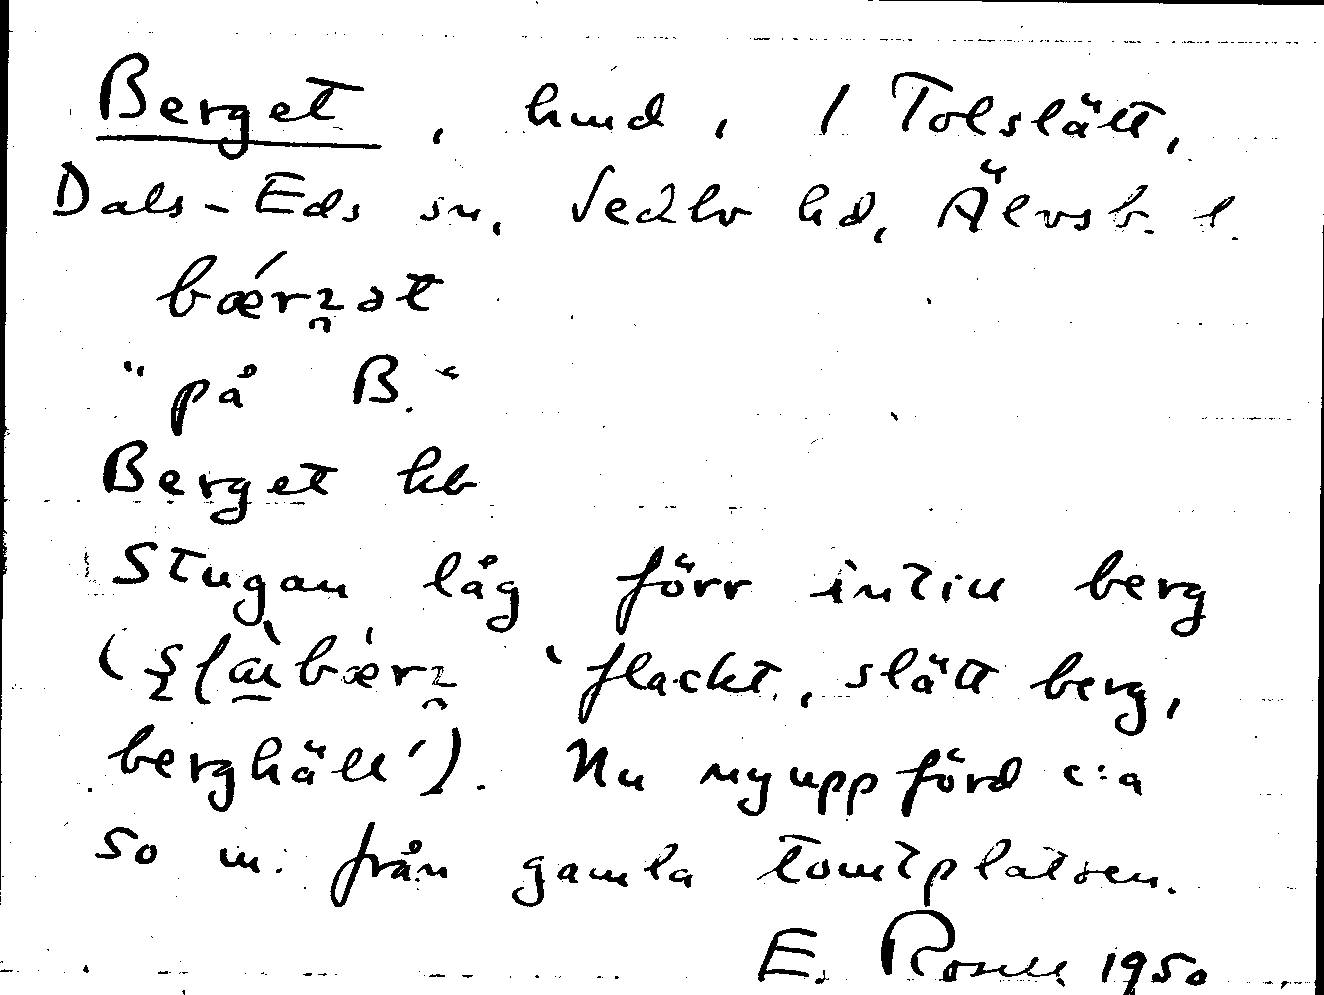 Berget, hmd, 1 Tolslätt,
Dals-Eds sn, Vedbo hd, Älvsb. l.
"på B."
Berget kb
Stugan låg förr intill berg
'flackt, slätt berg,
berghäll'). Nu nyuppförd c:a
50 m. från gamla tomtplatsen.
E. Rosell 1950